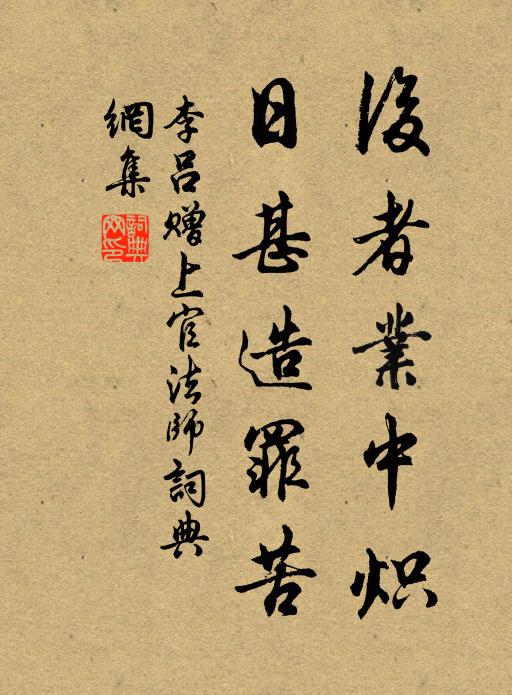 後者業中炽
日甚造罪苦
李吕赠上官法師詞典
網集
詞典
网印